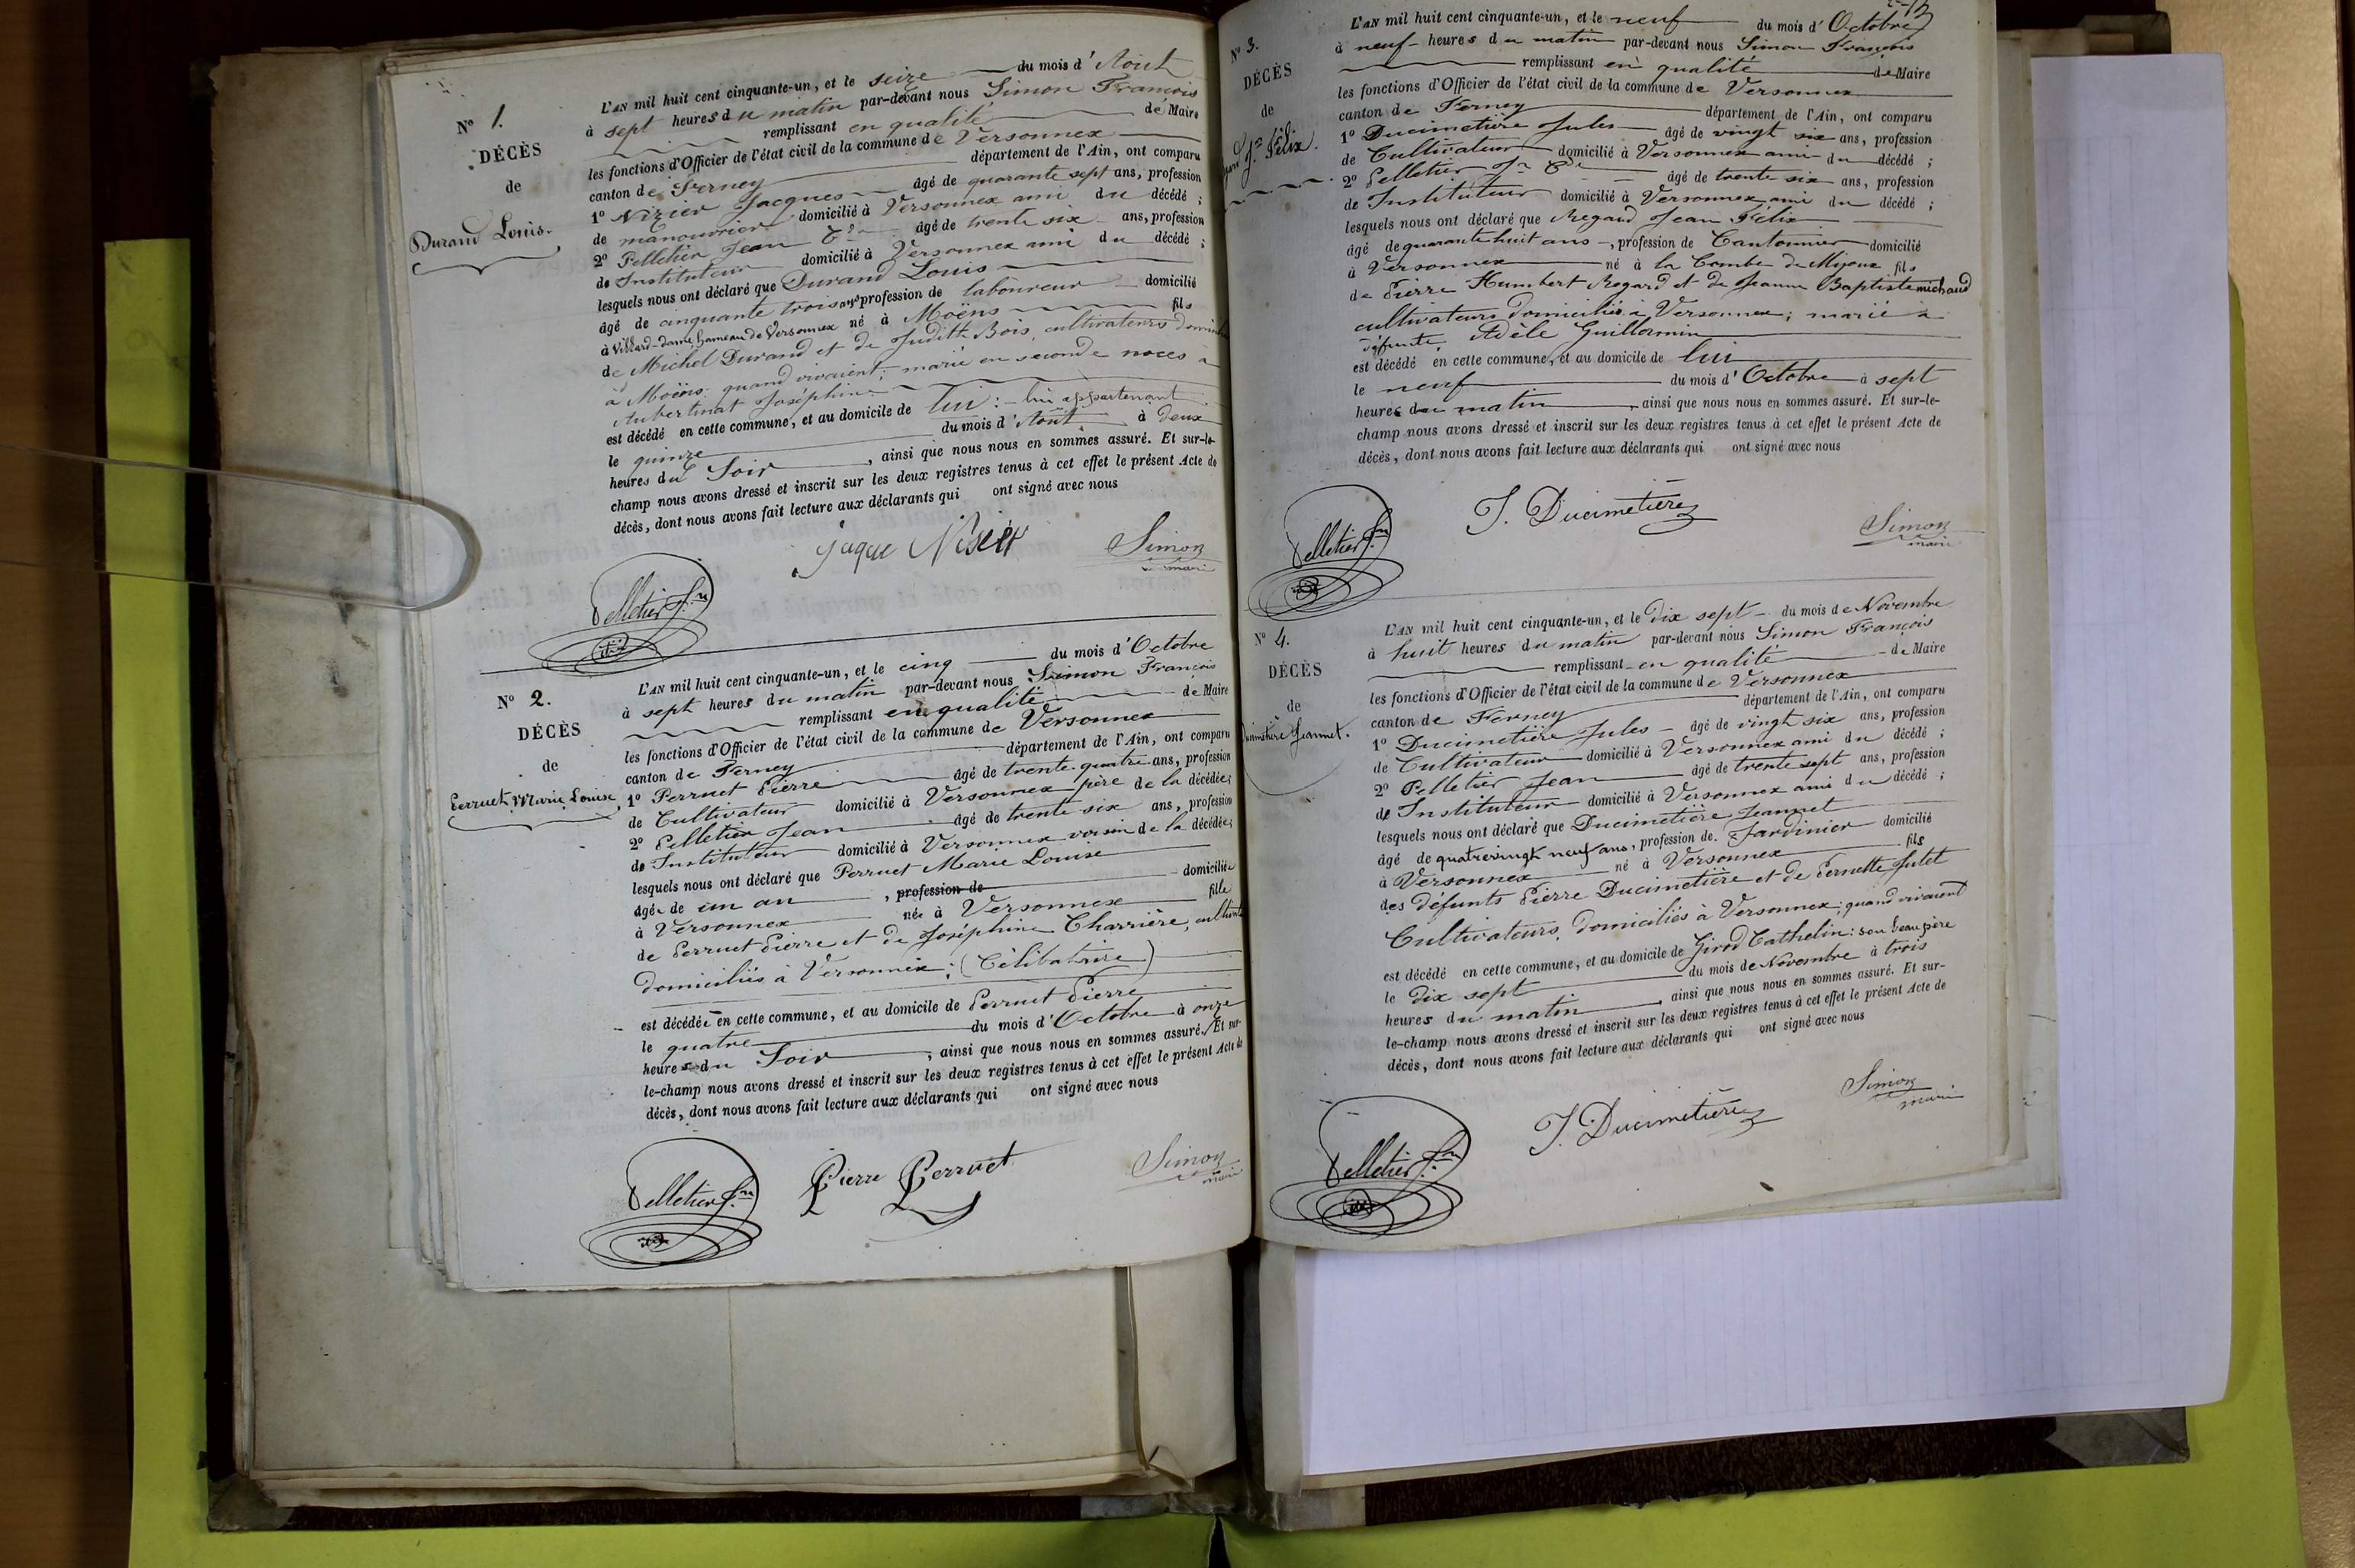 N° 1.
DÉCÈS
de
Durand Louis.
L'AN mil huit cent cinquante-un, et le seize du mois d'Aout
à sept heures du matin par-devant nous Simon François
remplissant en qualité de Maire
les fonctions d'Officier de l'état civil de la commune de Versonnex
canton de Ferney département de l'Ain, ont comparu
1° Nizier Jacques âgé de quarante sept ans, profession
de manouvrier domicilié à Versonnex ami du décédé ;
2° Pelletier Jean âgé de trente six ans, profession
de Instituteur domicilié à Versonnex ami du décédé ;
lesquels nous ont déclaré que Durand Louis
âgé de cinquante trois ans profession de laboureur domicilié
à Villard-dame hameau de Versonnex né à Moëns fils
de Michel Durand et de Judith Bois, cultivateurs
à Moëns quand vivaient; marié en seconde noces à
Joséphine
est décédé en cette commune, et au domicile de lui : lui appartenant
le quinze du mois d'Aout à deux
heures du Soir, ainsi que nous nous en sommes assuré. Et sur-le-
champ nous avons dressé et inscrit sur les deux registres tenus à cet effet le présent Acte de
décès, dont nous avons fait lecture aux déclarants qui ont signé avec nous
Jaque Nisier
Simon
maire
Pelletier Jn
N° 2.
DÉCÈS
de
Perruet Marie Louise
L'AN mil huit cent cinquante-un, et le cinq du mois d'Octobre
à sept heures du matin par-devant nous Simon François
remplissant en qualité de Maire
les fonctions d'Officier de l'état civil de la commune de Versonnex
canton de Ferney département de l'Ain, ont comparu
1° Perruet Pierre âgé de trente-quatre ans, profession
de Cultivateur domicilié à Versonnex père de la décédée;
2° Pelletier Jean âgé de trente six ans, profession
de Instituteur domicilié à Versonnex voisin de la décédée;
lesquels nous ont déclaré que Perruet Marie Louise
âgée de un an, profession de domiciliée
à Versonnex née à Versonnex fille
de Perruet Pierre et de Joséphine Charrière,
domiciliés à Versonnex; (Célibataire)
est décédée en cette commune, et au domicile de Perruet Pierre
le quatre du mois d'Octobre à onze
heures du Soir, ainsi que nous nous en sommes assuré. Et sur-
le-champ nous avons dressé et inscrit sur les deux registres tenus à cet effet le présent Acte de
décès, dont nous avons fait lecture aux déclarants qui ont signé avec nous
Pelletier Jn
Pierre Perruet
Simon
maire
N° 3.
DÉCÈS
de
Jn Félix.
L'AN mil huit cent cinquante-un, et le neuf du mois d'Octobre
à neuf heures du matin par-devant nous Simon François
remplissant en qualité de Maire
les fonctions d'Officier de l'état civil de la commune de Versonnex
canton de Ferney département de l'Ain, ont comparu
1° Ducimetière Jules âgé de vingt six ans, profession
de Cultivateur domicilié à Versonnex ami du décédé ;
2° Pelletier Jn âgé de trente six ans, profession
de Instituteur domicilié à Versonnex ami du décédé ;
lesquels nous ont déclaré que Regard Jean Félix
âgé de quarante huit ans, profession de Cantonnier domicilié
à Versonnex né à la Combe de Mijoux fils
de Pierre Humbert Regard et de Jeanne Baptiste michaud
cultivateurs domiciliés à Versonnex; marié à
défunte Adèle Guillermin
est décédé en cette commune, et au domicile de lui
le neuf du mois d'Octobre à sept
heures du matin, ainsi que nous nous en sommes assuré. Et sur-le-
champ nous avons dressé et inscrit sur les deux registres tenus à cet effet le présent Acte de
décès, dont nous avons fait lecture aux déclarants qui ont signé avec nous
Pelletier Jn
J. Ducimetière
Simon
maire
N° 4.
DÉCÈS
de
Ducimetière Jeannet.
L'AN mil huit cent cinquante-un, et le Dix sept du mois de Novembre
à huit heures du matin par-devant nous Simon François
remplissant en qualité de Maire
les fonctions d'Officier de l'état civil de la commune de Versonnex
canton de Ferney département de l'Ain, ont comparu
1° Ducimetière Jules âgé de vingt six ans, profession
de Cultivateur domicilié à Versonnex ami du décédé ;
2° Pelletier Jean âgé de trente sept ans, profession
de Instituteur domicilié à Versonnex ami du décédé ;
lesquels nous ont déclaré que Ducimetière Jeannet
âgé de quatrevingt neuf ans, profession de Jardinier domicilié
à Versonnex né à Versonnex fils
des défunts Pierre Ducimetière et de Pernette
Cultivateurs, domiciliés à Versonnex; quand vivaient
est décédé en cette commune, et au domicile de Girod Cathelin: son beau père
le Dix sept du mois de Novembre à trois
heures du matin, ainsi que nous nous en sommes assuré. Et sur-
le-champ nous avons dressé et inscrit sur les deux registres tenus à cet effet le présent Acte de
décès, dont nous avons fait lecture aux déclarants qui ont signé avec nous
Pelletier Jn
J. Ducimetière
Simon
maire